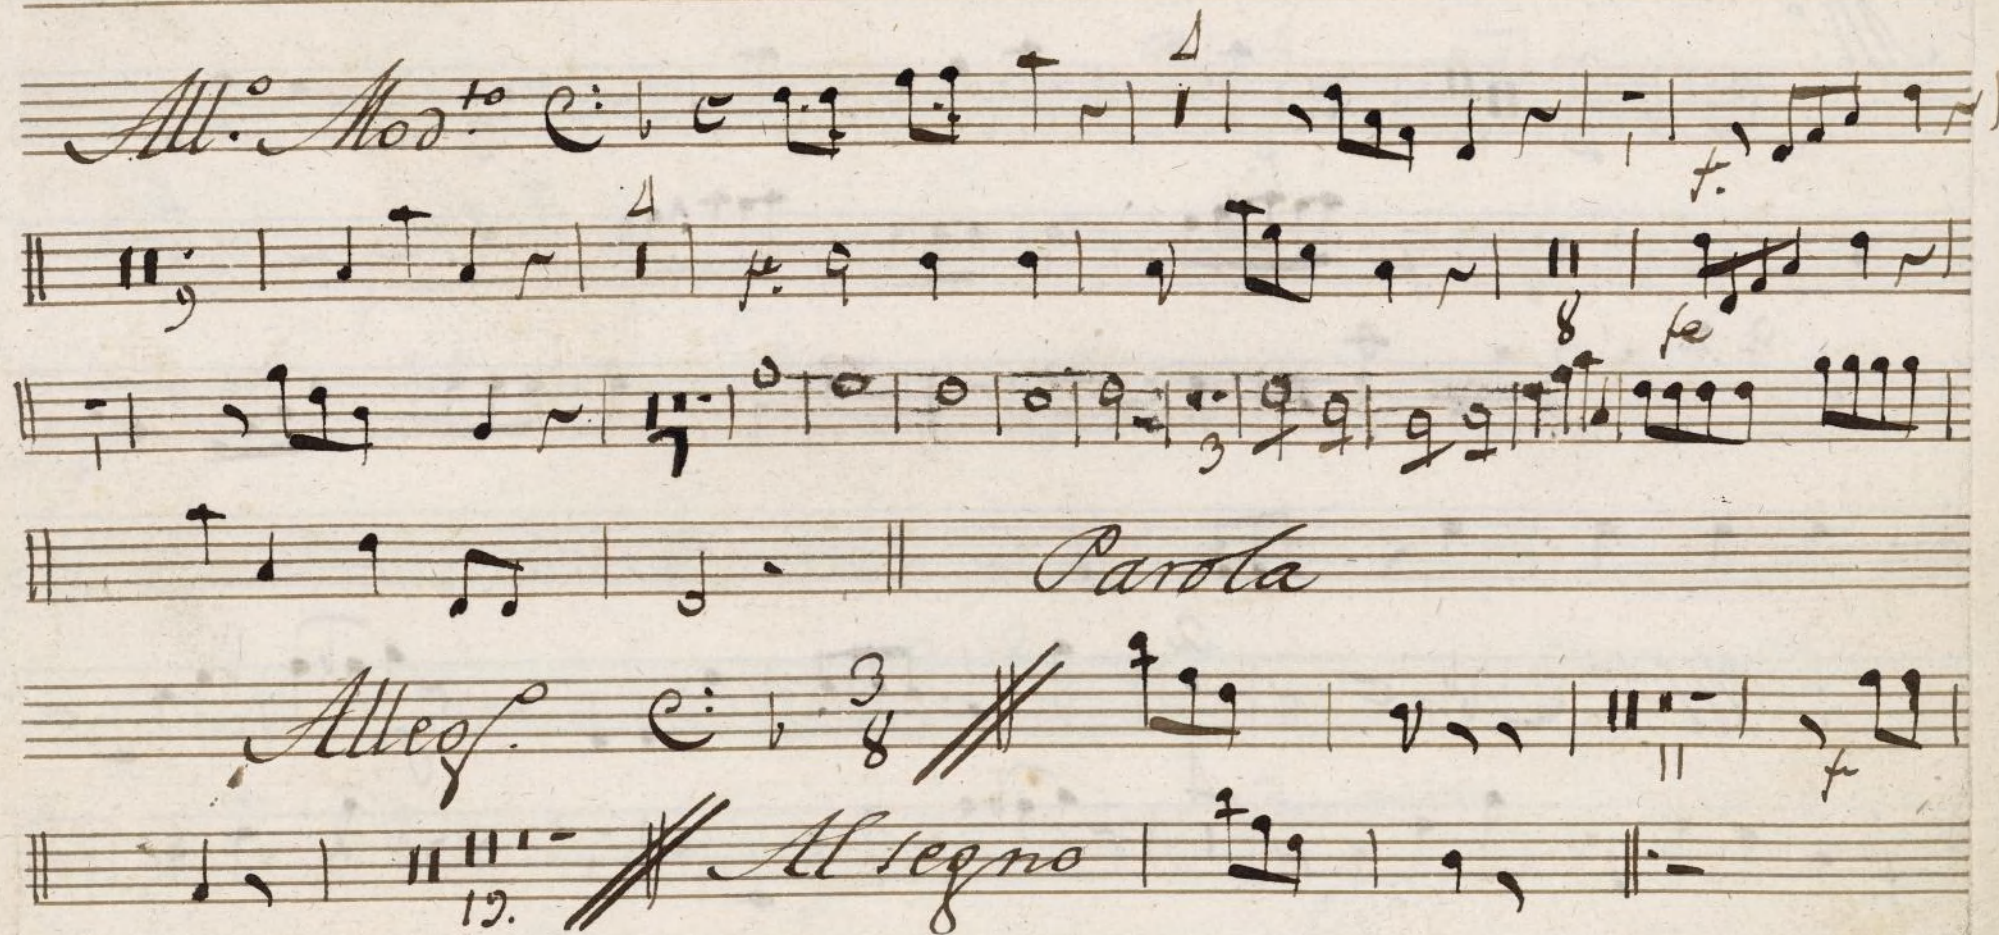 All.º Mod.to 4
f.
9 4 p. 8 fe
1 7 3
Parola
Alleg. 3 8 11 f
19. Al segno